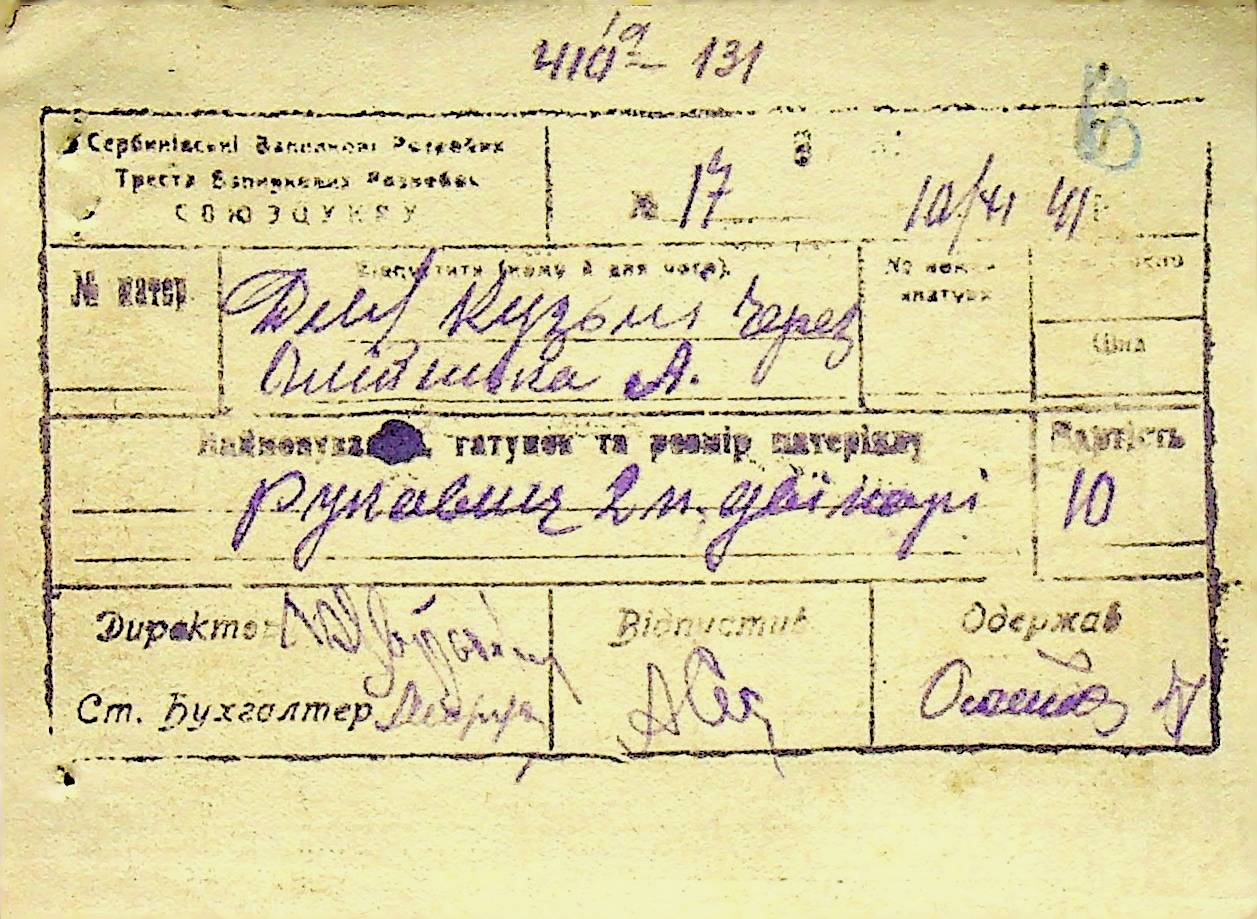 410а – 131
Сербинівські Вапнякові Розробки
Треста Вапнякових Розробок
СОЮЗЦУКРУ
№ 17
10/VI 41 р.
№ матер.
Відпустити (кому й для чого).
Для Кузьні через
Олійника А.
№ номенклатури
Ціна
Найменування, гатунок та розмір матеріялу
Вартість
Рукавиц 2 п. дві парі
10
Директор
Відпустив
Одержав
Ст. Бухгалтер